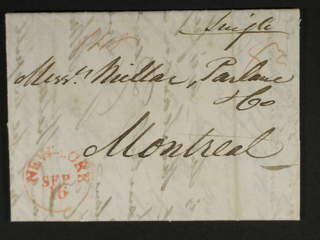 Single
Messrs. Millar, Parlane
& Co
Montreal
NEW-YORK
SEP
16